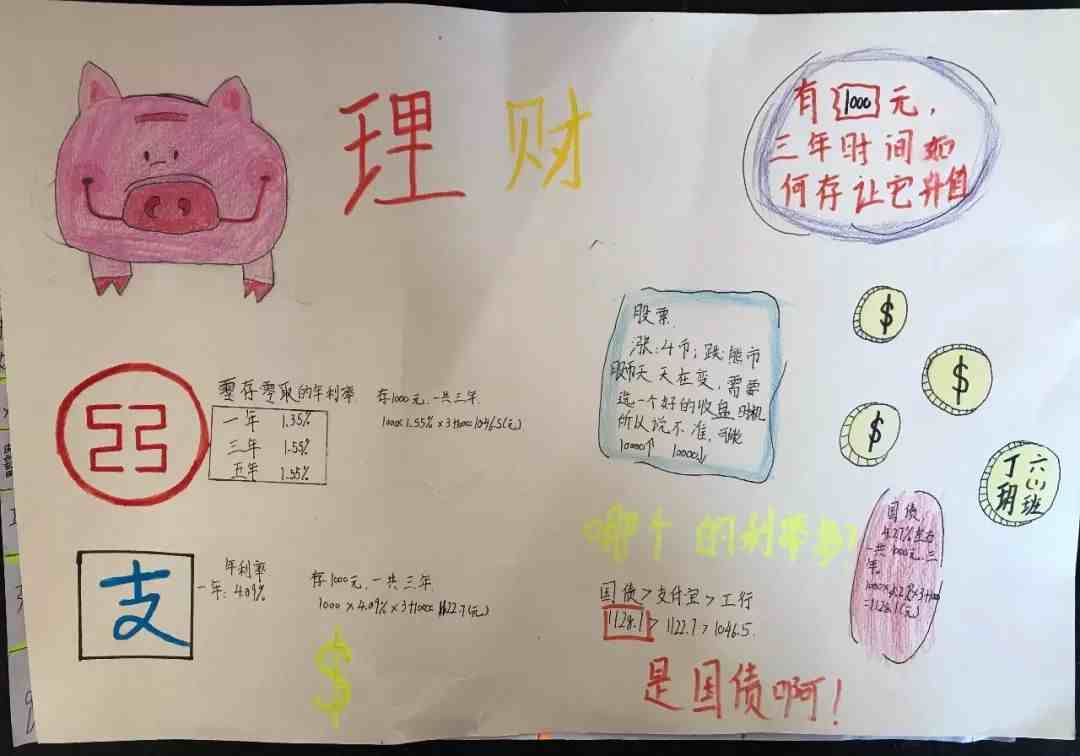 理财
有1000元，
三年时间如
何存让它升值
零存零取的年利率
一年 1.35%
三年 1.55%
五年 1.55%
存1000元，一共三年
1000×1.55%×3+1000=1046.5(元)
股票
涨:牛市; 跌:熊市
股市天天在变，需要
选一个好的收盘时机
所以说不准，可能
10000↑ 10000↓
$
$
$
六(1)班
丁玥
支
年利率
一年: 4.09%
存1000元，一共三年
1000×4.09%×3+1000=1122.7(元)
$
哪个的利率高?
国债>支付宝>工行
1128.1>1122.7>1046.5.
是国债啊!
国债
4.27%左右
一共1000元,三
年
1000×4.27%×3+1000
=1128.1(元)